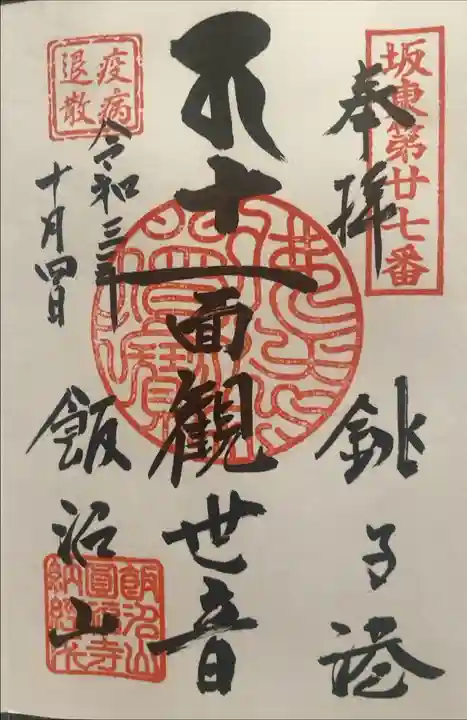 坂東第廿七番
奉拝
銚子港
十一面観世音
疫病
退散
令和三年
十月四日
飯沼山
飯沼山
圓福寺
納経之